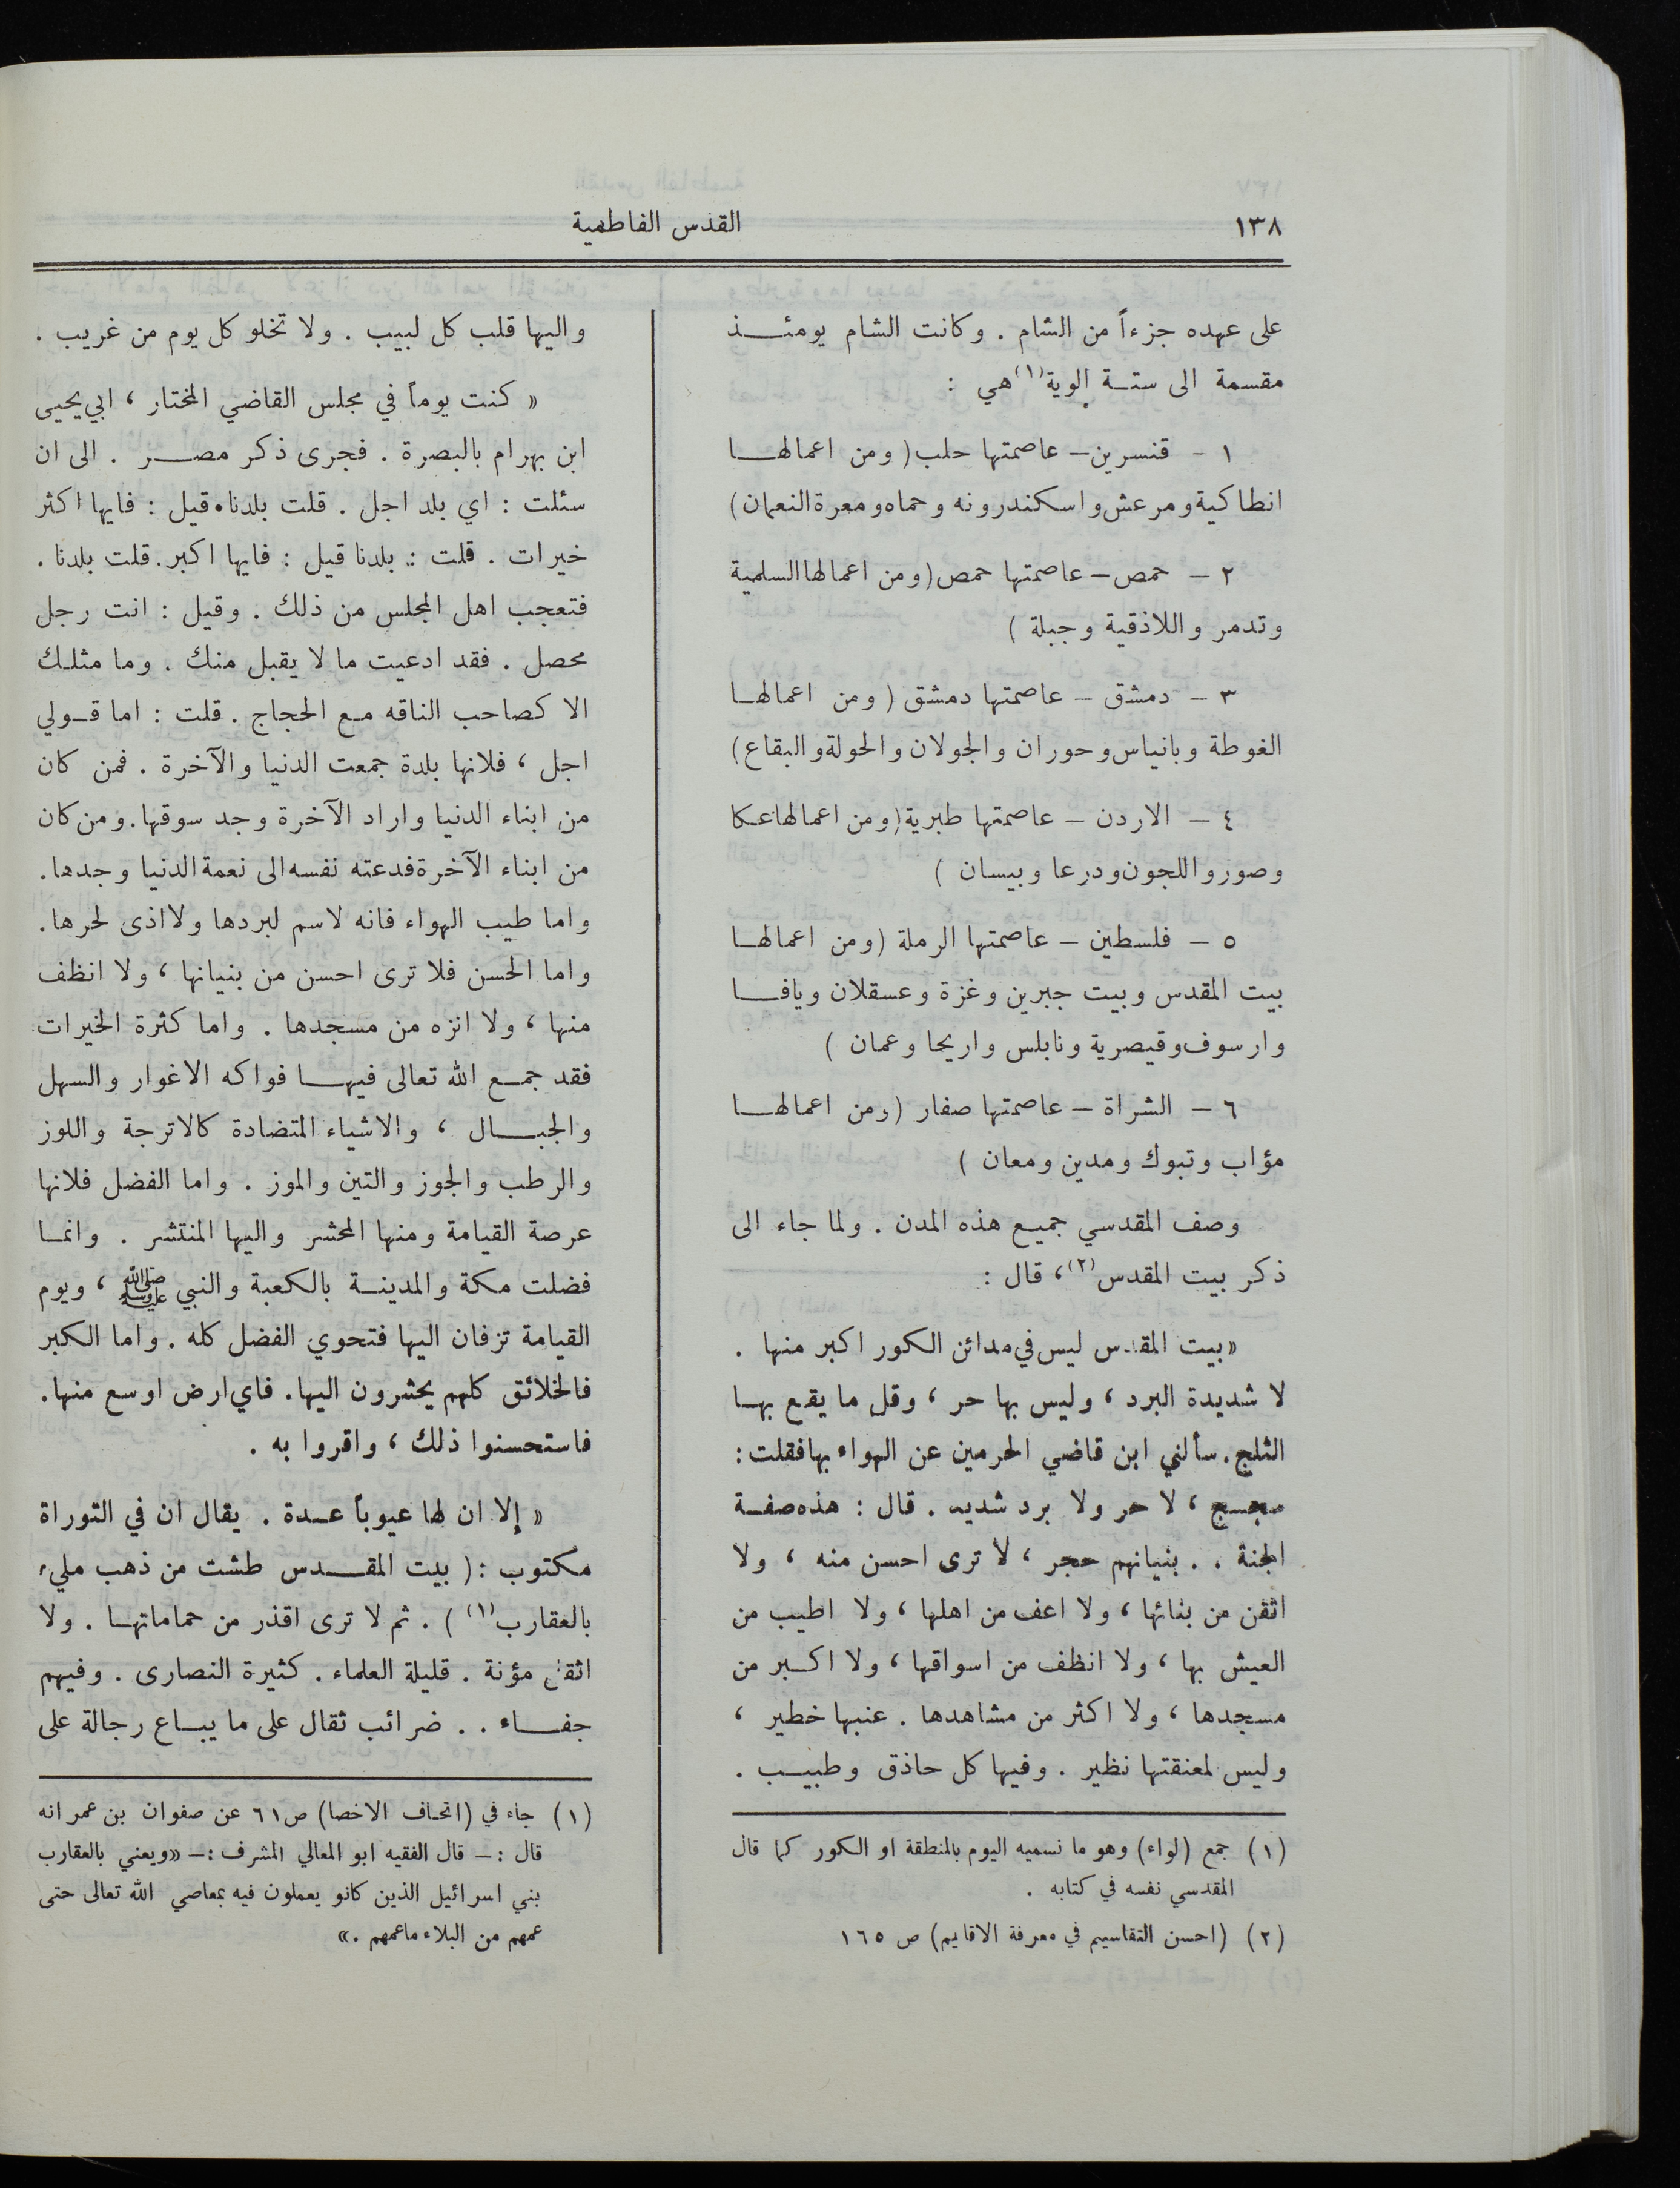 ١٣٨
القدس الفاطمية
على عهده جزءاً من الشام . وكانت الشام يومئذ
مقسمة الى ستة الوية(١) هي :
١ - قنسرين – عاصمتها حلب ( ومن اعمالها
انطاكية ومرعش واسكندرونه وحماه ومعرة النعمان )
٢ – حمص – عاصمتها حمص ( ومن اعمالها السلمية
وتدمر واللاذقية وجبلة )
٣ – دمشق – عاصمتها دمشق ( ومن اعمالها
الغوطة وبانياس وحوران والجولان والحولة والبقاع )
٤ – الاردن – عاصمتها طبرية ( ومن اعمالها عكا
وصور واللجون ودرعا وبيسان )
٥ – فلسطين – عاصمتها الرملة ( ومن اعمالها
بيت المقدس وبيت جبرين وغزة وعسقلان ويافا
وارسوف وقيصرية ونابلس واريحا وعمان )
٦ – الشراة – عاصمتها صفار ( ومن اعمالها
مؤاب وتبوك ومدين ومعان )
وصف المقدسي جميع هذه المدن . ولما جاء الى
ذكر بيت المقدس(٢) ، قال :
« بيت المقدس ليس في مدائن الكور اكبر منها .
لا شديدة البرد ، وليس بها حر ، وقل ما يقع بها
الثلج . سألني ابن قاضي الحرمين عن الهواء بها فقلت :
سجسج ، لا حر ولا برد شديد . قال : هذه صفة
الجنة . . بنيانهم حجر ، لا ترى احسن منه ، ولا
اتقن من بنائها ، ولا اعف من اهلها ، ولا اطيب من
العيش بها ، ولا انظف من اسواقها ، ولا اكبر من
مسجدها ، ولا اكثر من مشاهدها . عنبها خطير ،
وليس لمعنقتها نظير . وفيها كل حاذق وطبيب .
(١) جمع (لواء) وهو ما نسميه اليوم بالمنطقة او الكور كما قال
المقدسي نفسه في كتابه .
(٢) (احسن التقاسيم في معرفة الاقايم) ص ١٦٥
واليها قلب كل لبيب . ولا تخلو كل يوم من غريب .
« كنت يوماً في مجلس القاضي المختار ، ابي يحيى
ابن بهرام بالبصرة . فجرى ذكر مصر . الى ان
سئلت : اي بلد اجل . قلت بلدنا . قيل : فايها اكثر
خيرات . قلت : بلدنا قيل : فايها اكبر . قلت بلدنا .
فتعجب اهل المجلس من ذلك . وقيل : انت رجل
محصل . فقد ادعيت ما لا يقبل منك . وما مثلك
الا كصاحب الناقه مع الحجاج . قلت : اما قولي
اجل ، فلانها بلدة جمعت الدنيا والآخرة . فمن كان
من ابناء الدنيا واراد الآخرة وجد سوقها . ومن كان
من ابناء الآخرة فدعته نفسه الى نعمة الدنيا وجدها .
واما طيب الهواء فانه لاسم لبردها ولا اذى لحرها .
واما الحسن فلا ترى احسن من بنيانها ، ولا انظف
منها ، ولا انزه من مسجدها . واما كثرة الخيرات
فقد جمع الله تعالى فيها فواكه الاغوار والسهل
والجبال ، والاشياء المتضادة كالاترجة واللوز
والرطب والجوز والتين والموز . واما الفضل فلانها
عرصة القيامة ومنها المحشر واليها المنتشر . وانما
فضلت مكة والمدينة بالكعبة والنبي ﷺ ، ويوم
القيامة تزفان اليها فتحوي الفضل كله . واما الكبر
فالخلائق كلهم يحشرون اليها . فاي ارض اوسع منها .
فاستحسنوا ذلك ، واقروا به .
« إلا ان لها عيوباً عدة . يقال ان في التوراة
مكتوب : ( بيت المقدس طشت من ذهب مليء
بالعقارب(١) ) . ثم لا ترى اقذر من حماماتها . ولا
اثقل مؤنة . قليلة العلماء . كثيرة النصارى . وفيهم
جفاء . . ضرائب ثقال على ما يباع رجالة على
(١) جاء في (اتحاف الاخصا) ص ٦١ عن صفوان بن عمر انه
قال : – قال الفقيه ابو المعالي المشرف : – «ويعني بالعقارب
بني اسرائيل الذين كانو يعملون فيه بمعاصي الله تعالى حتى
عمهم من البلاء ماعمهم .»